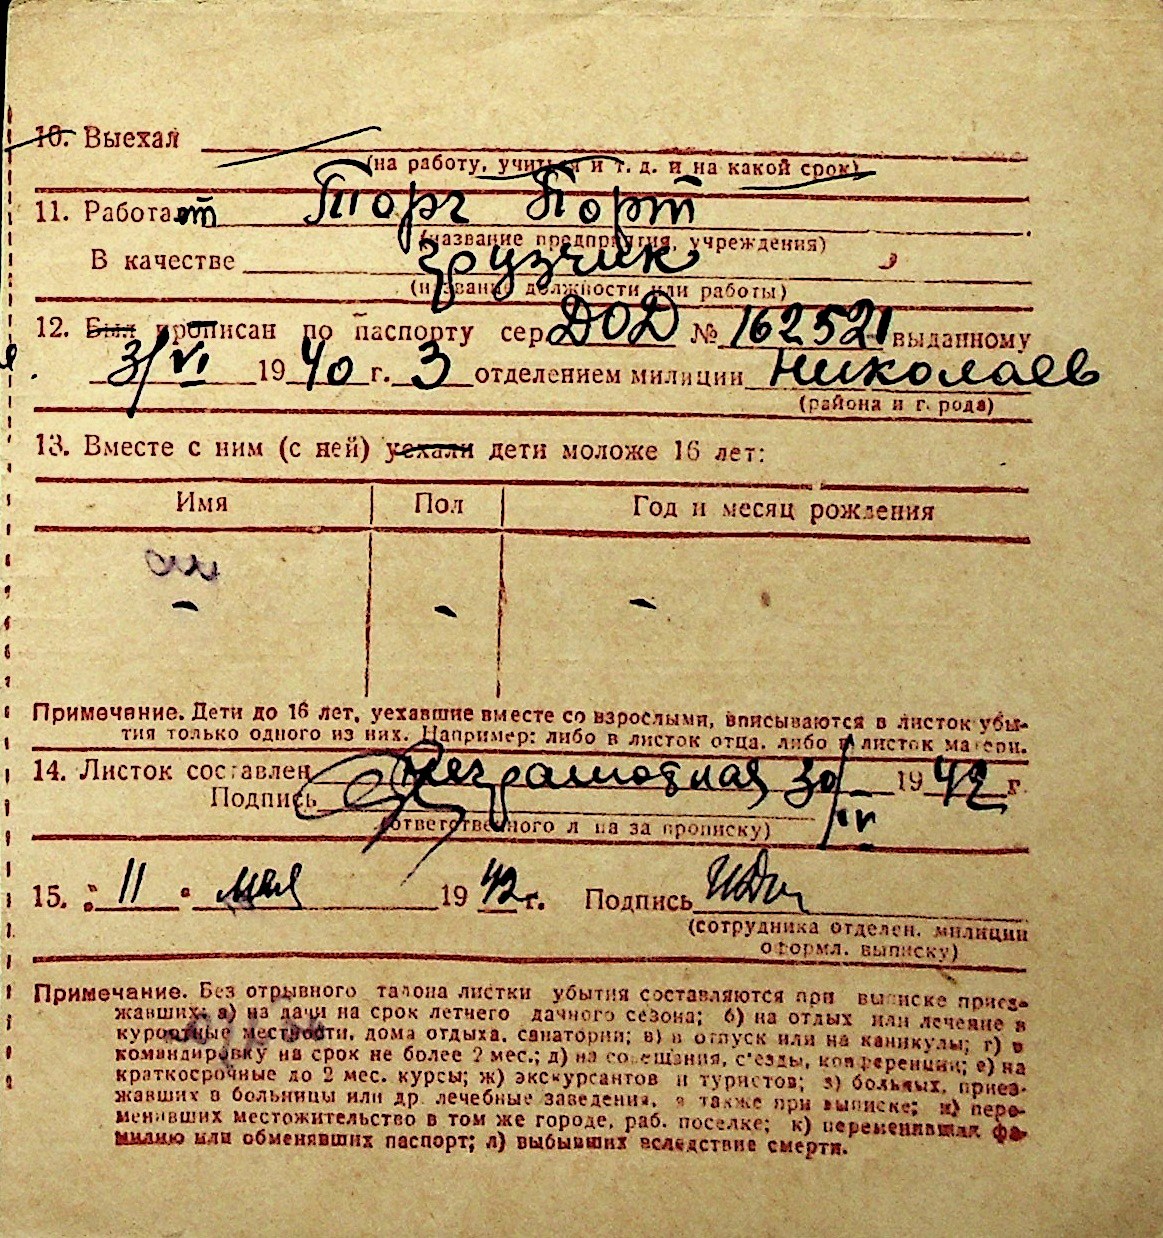 10. Выехал
(на работу, учиться и т. д. и на какой срок)
11. Работает Торг Порт
(название предприятия, учреждения)
В качестве грузчик
(название должности или работы)
12. Был прописан по паспорту сер. ДОД № 162521 выданному
3/VI 1940 г. 3 отделением милиции Николаев
(района и города)
13. Вместе с ним (с ней) уехали дети моложе 16 лет:
Имя Пол Год и месяц рождения
- - -
Примечание. Дети до 16 лет, уехавшие вместе со взрослыми, вписываются в листок убы-
тия только одного из них. Например: либо в листок отца, либо в листок матери.
14. Листок составлен Неграмотная 30/IV 1942 г.
Подпись
(ответственного лица за прописку)
15. "11" мая 1942 г. Подпись
(сотрудника отделен. милиции
оформл. выписку)
Примечание. Без отрывного талона листки убытия составляются при выписке приез-
жавших: а) на дачи на срок летнего дачного сезона; б) на отдых или лечение в
курортные местности, дома отдыха, санатории; в) в отпуск или на каникулы; г) в
командировку на срок не более 2 мес.; д) на совещания, с'езды, конференции; е) на
краткосрочные до 2 мес. курсы; ж) экскурсантов и туристов; з) больных, приез-
жавших в больницы или др. лечебные заведения, а также при выписке; и) пере-
менивших местожительство в том же городе, раб. поселке; к) переменивших фа-
милию или обменявших паспорт; л) выбывших вследствие смерти.